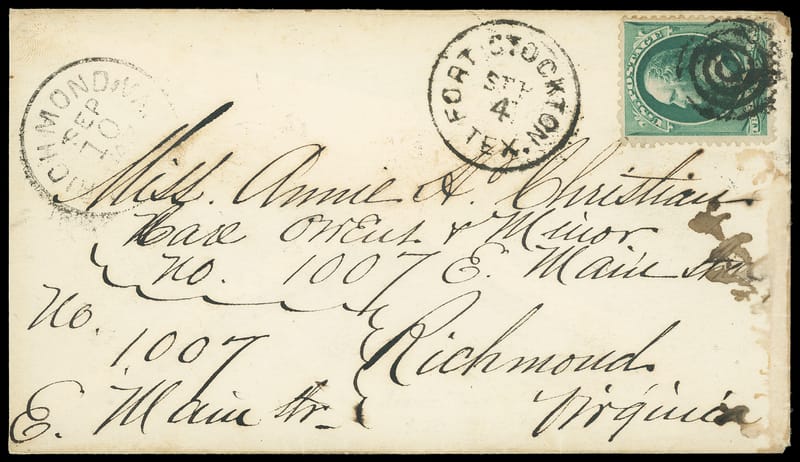 RICHMOND, VA.
SEP
10
FORT STOCKTON,
SEP
4
TEX.
POSTAGE
Miss. Annie A. Christian
Care Owens & Minor
No. 1007 E. Main Str
No.
1007
E. Main Str.
Richmond
Virginia